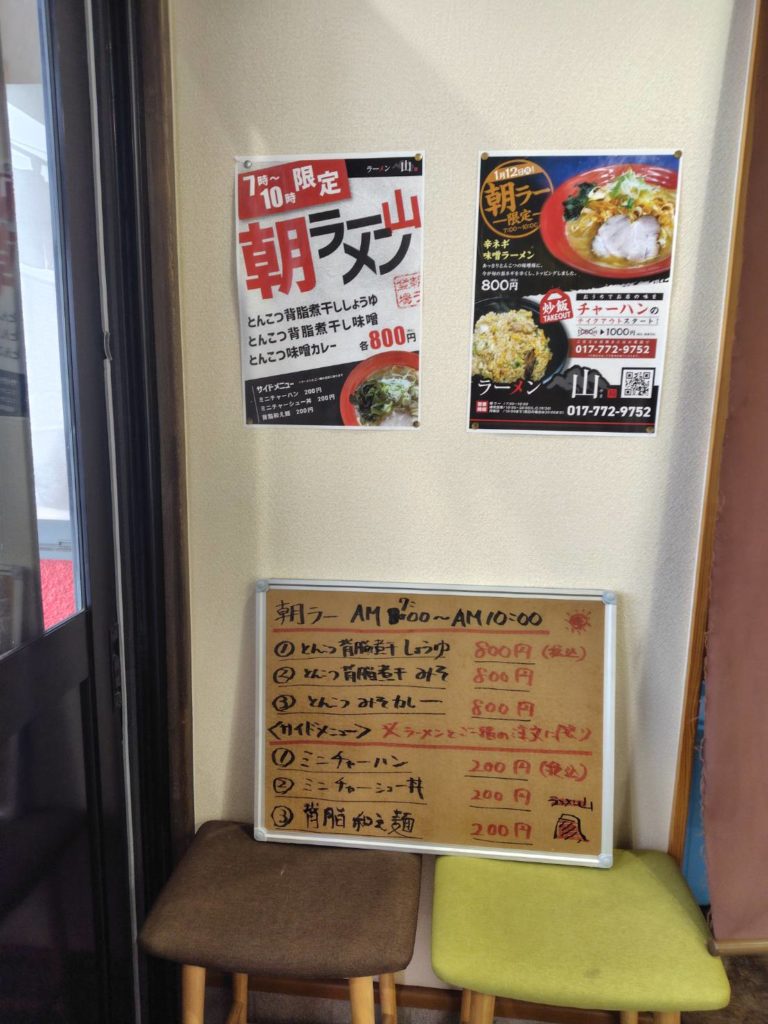 7時〜
10時 限定
ラーメン 山
朝ラー山
メン
とんこつ背脂煮干ししょうゆ
とんこつ背脂煮干し味噌
とんこつ味噌カレー
各800円
サイドメニュー
ミニチャーハン 200円
ミニチャーシュー丼 200円
背脂和え麺 200円
1月12日
朝ラー
限定
7:00〜10:00
辛ネギ
味噌ラーメン
あっさりとんこつの味噌味に、
今が旬の長ネギを辛くし、トッピングしました。
800円
炒飯
TAKEOUT
おうちでお店の味を
チャーハンの
テイクアウトスタート
1000円
017-772-9752
ラーメン 山
017-772-9752
朝ラー AM 7:00〜AM10:00
① とんこつ背脂煮干しょうゆ 800円 (税込)
② とんこつ背脂煮干 みそ 800円
③ とんこつ みそカレー 800円
<サイドメニュー> ※ラーメンとご一緒の注文に限り
① ミニチャーハン 200円 (税込)
② ミニチャーシュー丼 200円
③ 背脂和え麺 200円
ラーメン山